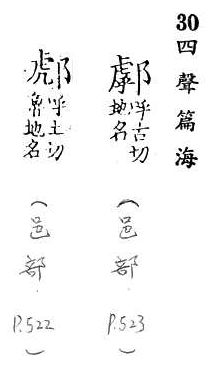 30四聲篇海
呼古切
地名
(邑部 P.523)
呼土切
魯地名
(邑部 P.522)